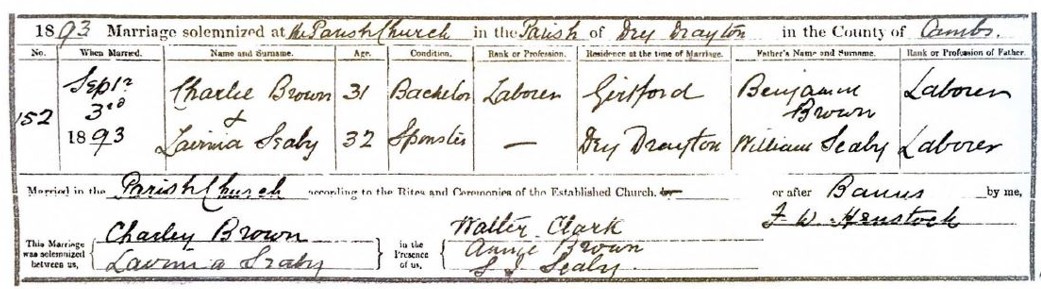 1893 Marriage solemnized at the Parish Church in the Parish of Dry Drayton in the County of Cambs.
No. When Married. Name and Surname. Age. Condition. Rank or Profession. Residence at the time of Marriage. Father's Name and Surname. Rank or Profession of Father.
152 Sept 3rd 1893 Charlie Brown 31 Bachelor Laborer Girtford Benjamin Brown Laborer
& Lavinia Sealy 32 Spinster — Dry Drayton William Sealy Laborer
Married in the Parish Church according to the Rites and Ceremonies of the Established Church. by or after Banns by me,
F. W. Henstock
This Marriage was solemnized between us, Charley Brown Lavinia Sealy in the Presence of us, Walter Clark Annie Brown S J Sealy